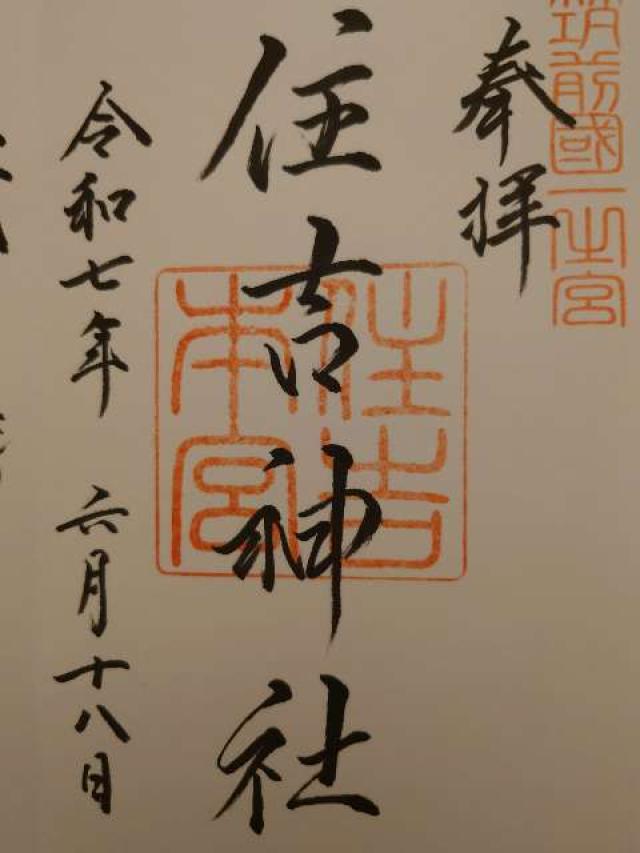 筑前國一之宮
奉拝
住吉神社
住吉本宮
令和七年 六月十八日